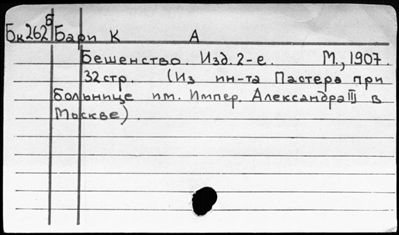 Бк262⁶ Бари К А
Бешенство. Изд. 2-е. М., 1907.
32стр. (Из ин-та Пастера при
больнице им. Импер. Александра III в
Москве).